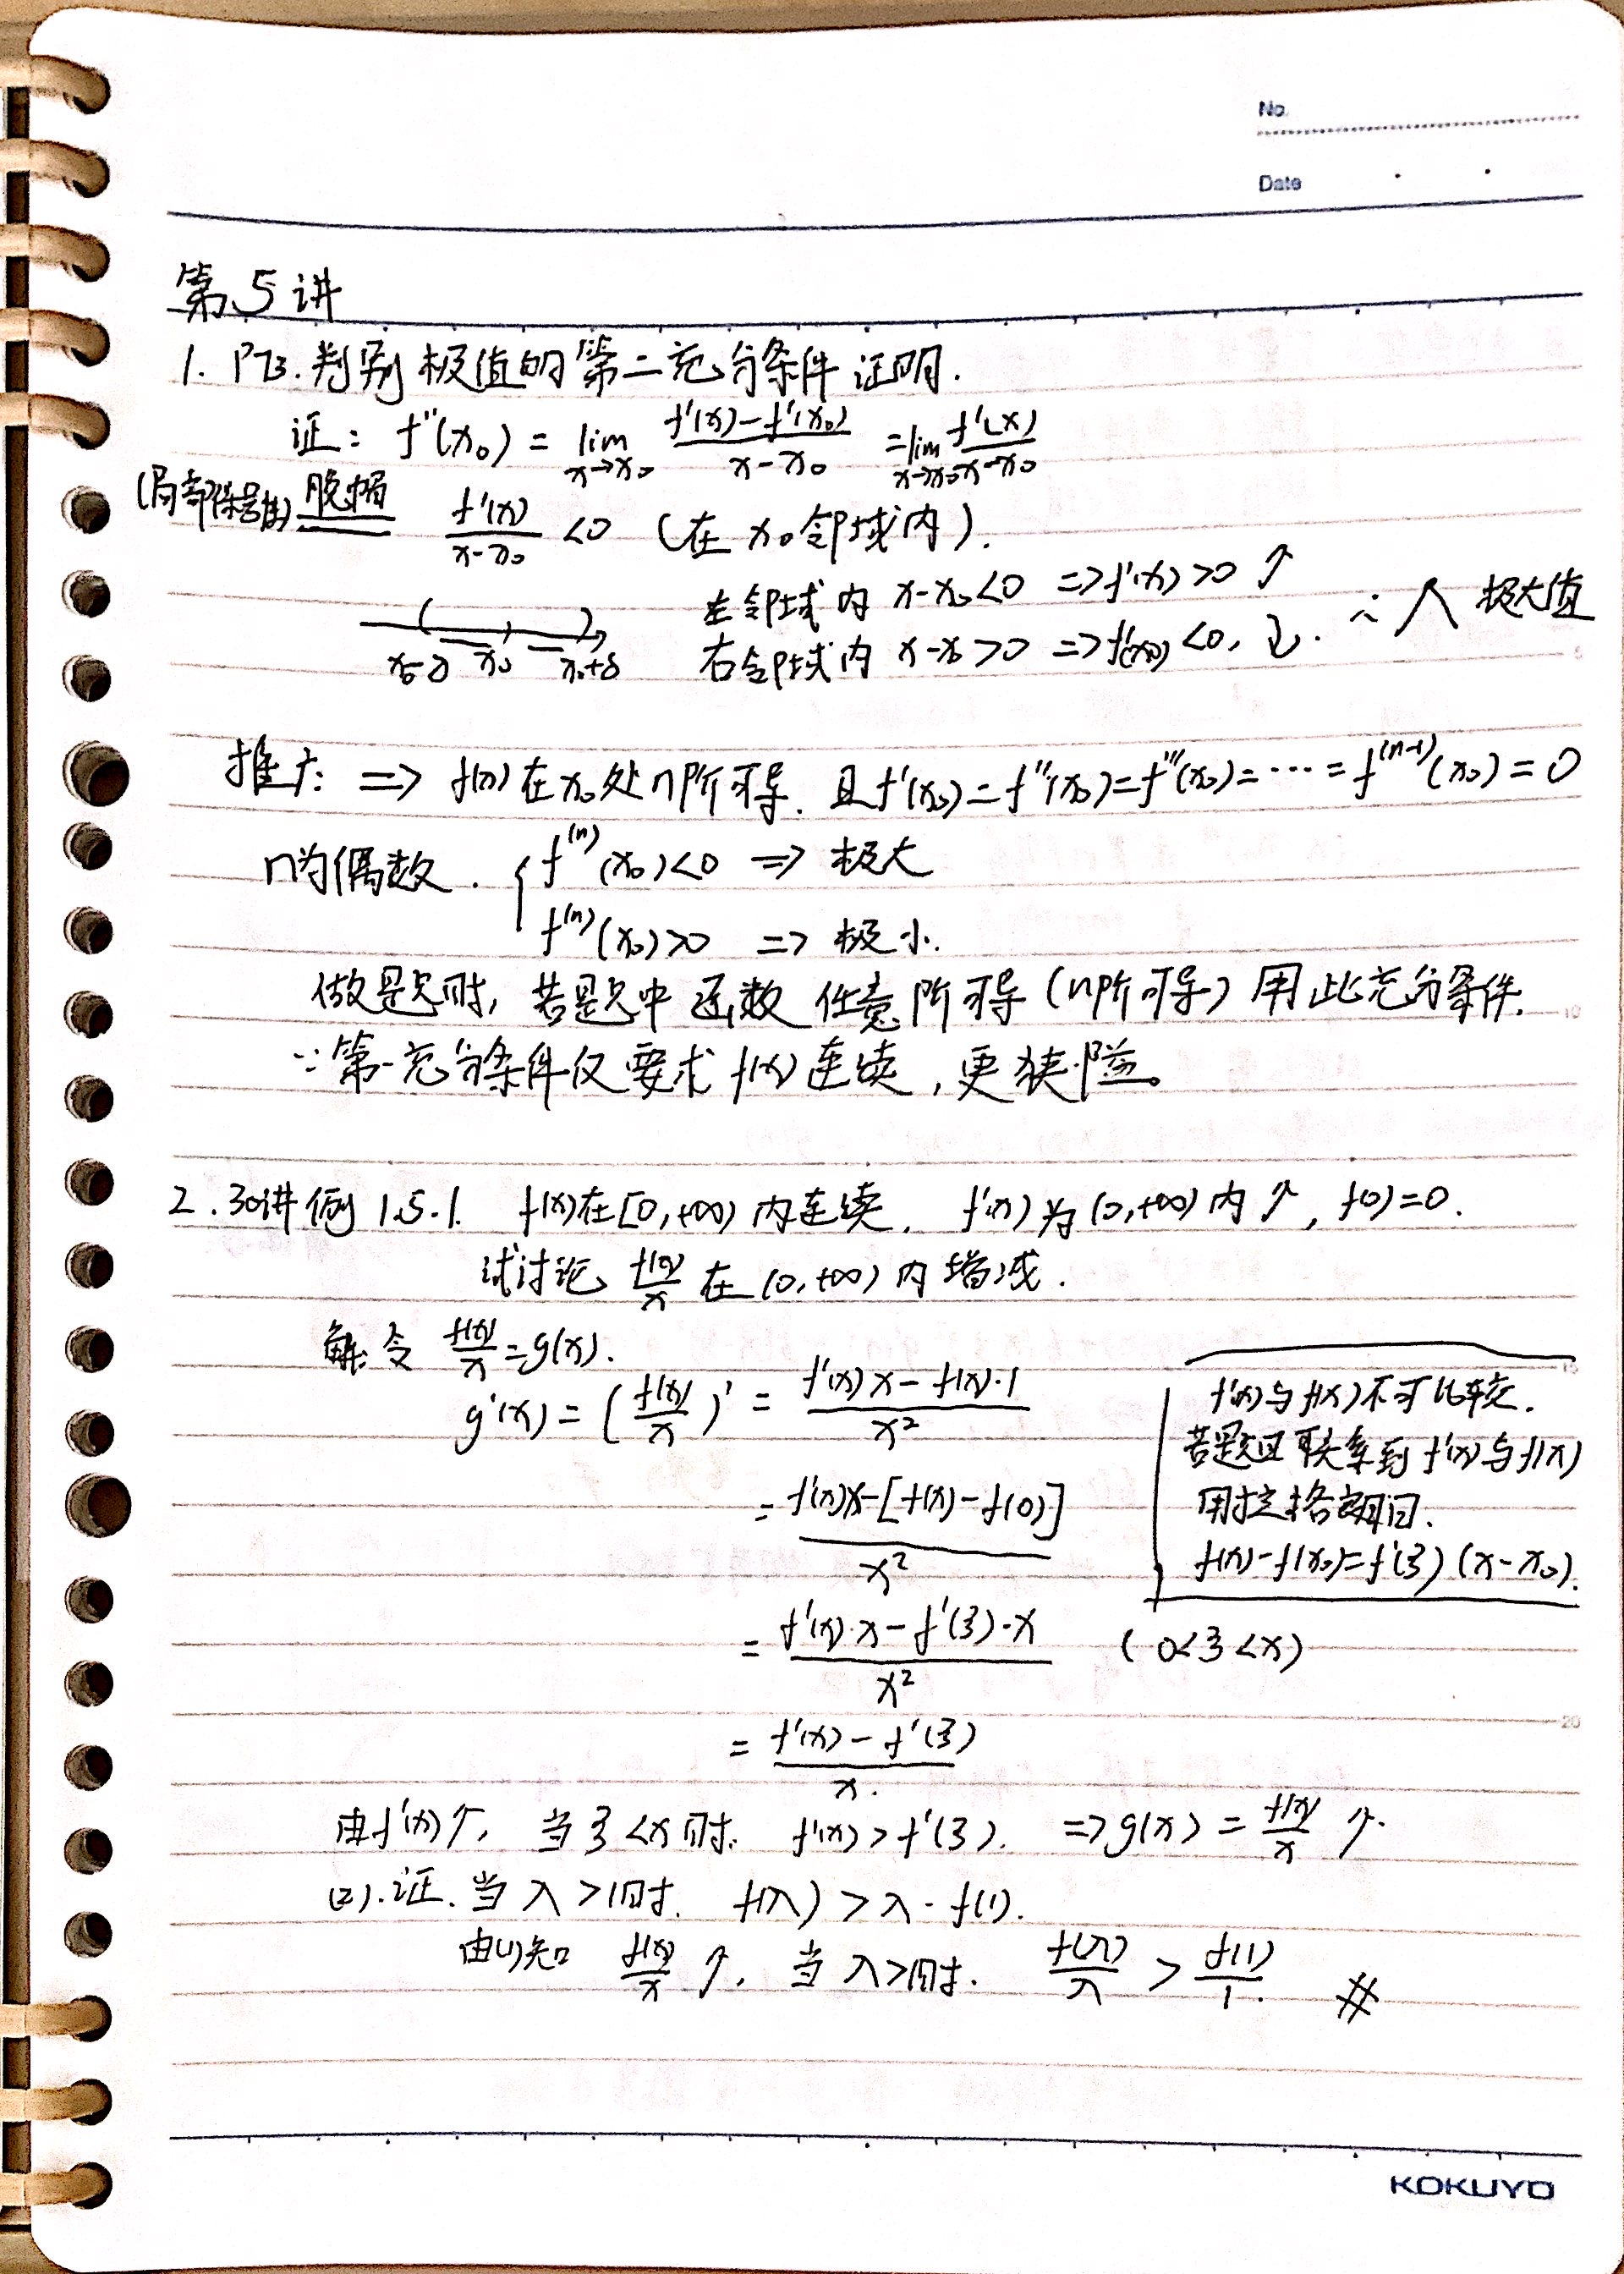 No.
Date
第5讲
1. P73. 判别极值的第二充分条件证明.
证: f''(x₀) = lim_{x→x₀} (f'(x)-f'(x₀))/(x-x₀) = lim_{x→x₀} f'(x)/(x-x₀)
(局部保号性) 脱帽 f'(x)/(x-x₀) <0 (在x₀邻域内).
左邻域内 x-x₀<0 => f'(x)>0 ↑
x₀-δ x₀ x₀+δ 右邻域内 x-x₀>0 => f'(x)<0, ↓. ∴ 极大值
推广: => f(x)在x₀处n阶可导. 且f'(x₀)=f''(x₀)=f'''(x₀)=…=f⁽ⁿ⁻¹⁾(x₀)=0
n为偶数. { f⁽ⁿ⁾(x₀)<0 => 极大
f⁽ⁿ⁾(x₀)>0 => 极小.
做题时, 若题中函数任意阶可导(n阶可导)用此充分条件.
∵第一充分条件仅要求f(x)连续, 更狭隘。
2. 30讲例1.5.1. f(x)在[0,+∞)内连续, f'(x)为(0,+∞)内↑, f(0)=0.
试讨论 f(x)/x 在(0,+∞)内增减.
解: 令 f(x)/x = g(x).
g'(x) = (f(x)/x)' = (f'(x)x - f(x)·1)/x²
= (f'(x)x-[f(x)-f(0)])/x²
= (f'(x)·x-f'(ξ)·x)/x² (0<ξ<x)
= (f'(x)-f'(ξ))/x.
f'(x)与f(x)不可比较.
若题目联系到f'(x)与f(x)
用拉格朗日.
f(x)-f(x₀)=f'(ξ)(x-x₀).
由f'(x)↑, 当ξ<x时. f'(x)>f'(ξ). => g(x) = f(x)/x ↑.
(2).证. 当λ>1时. f(λ)>λ·f(1).
由(1)知 f(x)/x ↑, 当λ>1时. f(λ)/λ > f(1)/1. #
5
10
15
20
KOKUYO